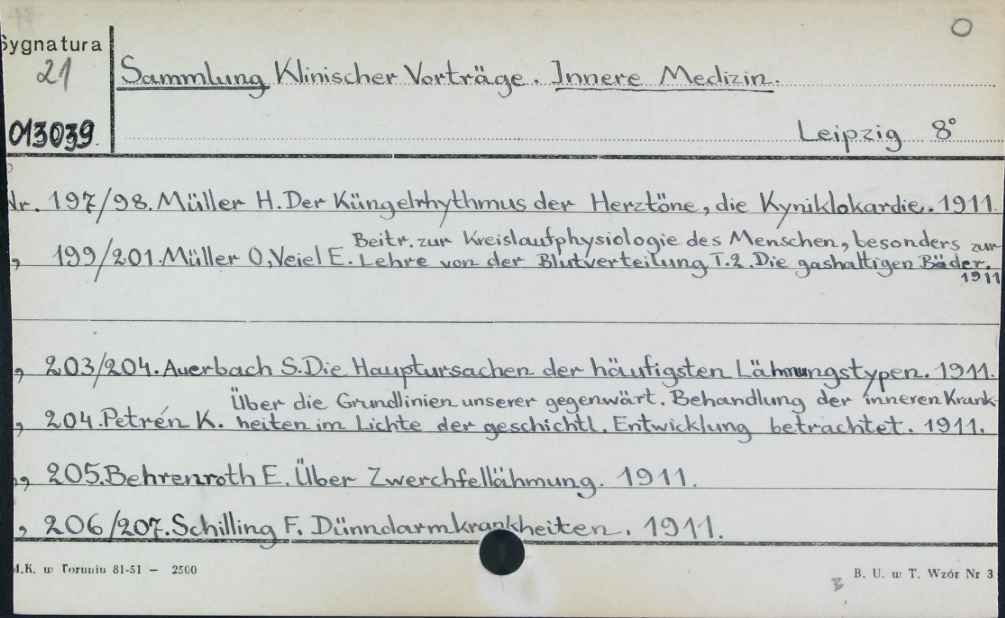 Sygnatura
21
013039
Sammlung Klinischer Vorträge. Innere Medizin.
Leipzig 8°
Nr. 197/98. Müller H. Der Küngelrhythmus der Herztöne, die Kyniklokardie. 1911.
„ 199/201. Müller O, Veiel E. Beitr. zur Kreislaufphysiologie des Menschen, besonders zur
Lehre von der Blutverteilung T.2. Die gashaltigen Bäder.
1911
„ 203/204. Auerbach S. Die Hauptursachen der häufigsten Lähmungstypen. 1911.
„ 204. Petrén K. Über die Grundlinien unserer gegenwärt. Behandlung der inneren Krank-
heiten im Lichte der geschichtl. Entwicklung betrachtet. 1911.
„ 205. Behrenroth E. Über Zwerchfellähmung. 1911.
„ 206/207. Schilling F. Dünndarmkrankheiten. 1911.
M.K. w Toruniu 81-51 — 2500
B. U. w T. Wzór Nr 3